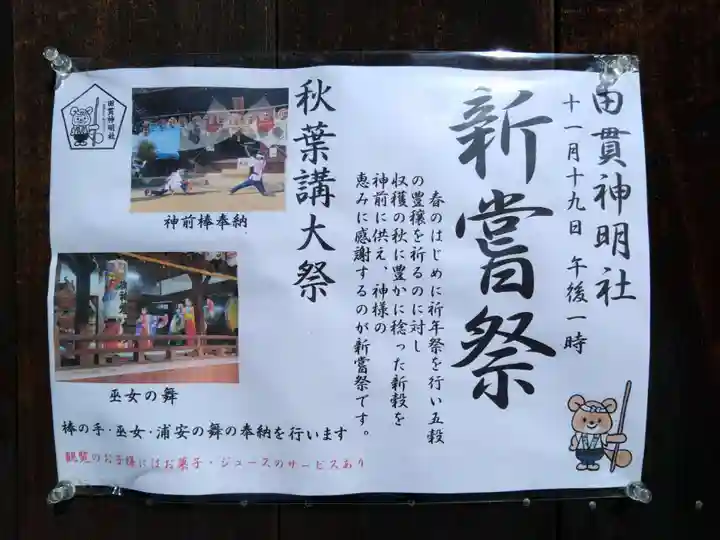 田貫神明社
十一月十九日 午後一時
新嘗祭
春のはじめに祈年祭を行い五穀
の豊穣を祈るのに対し
収穫の秋に豊かに稔った新穀を
神前に供え、神様の
恵みに感謝するのが新嘗祭です。
秋葉講大祭
田貫神明社
神前棒奉納
巫女の舞
棒の手・巫女・浦安の舞の奉納を行います
観覧のお子様にはお菓子・ジュースのサービスあり